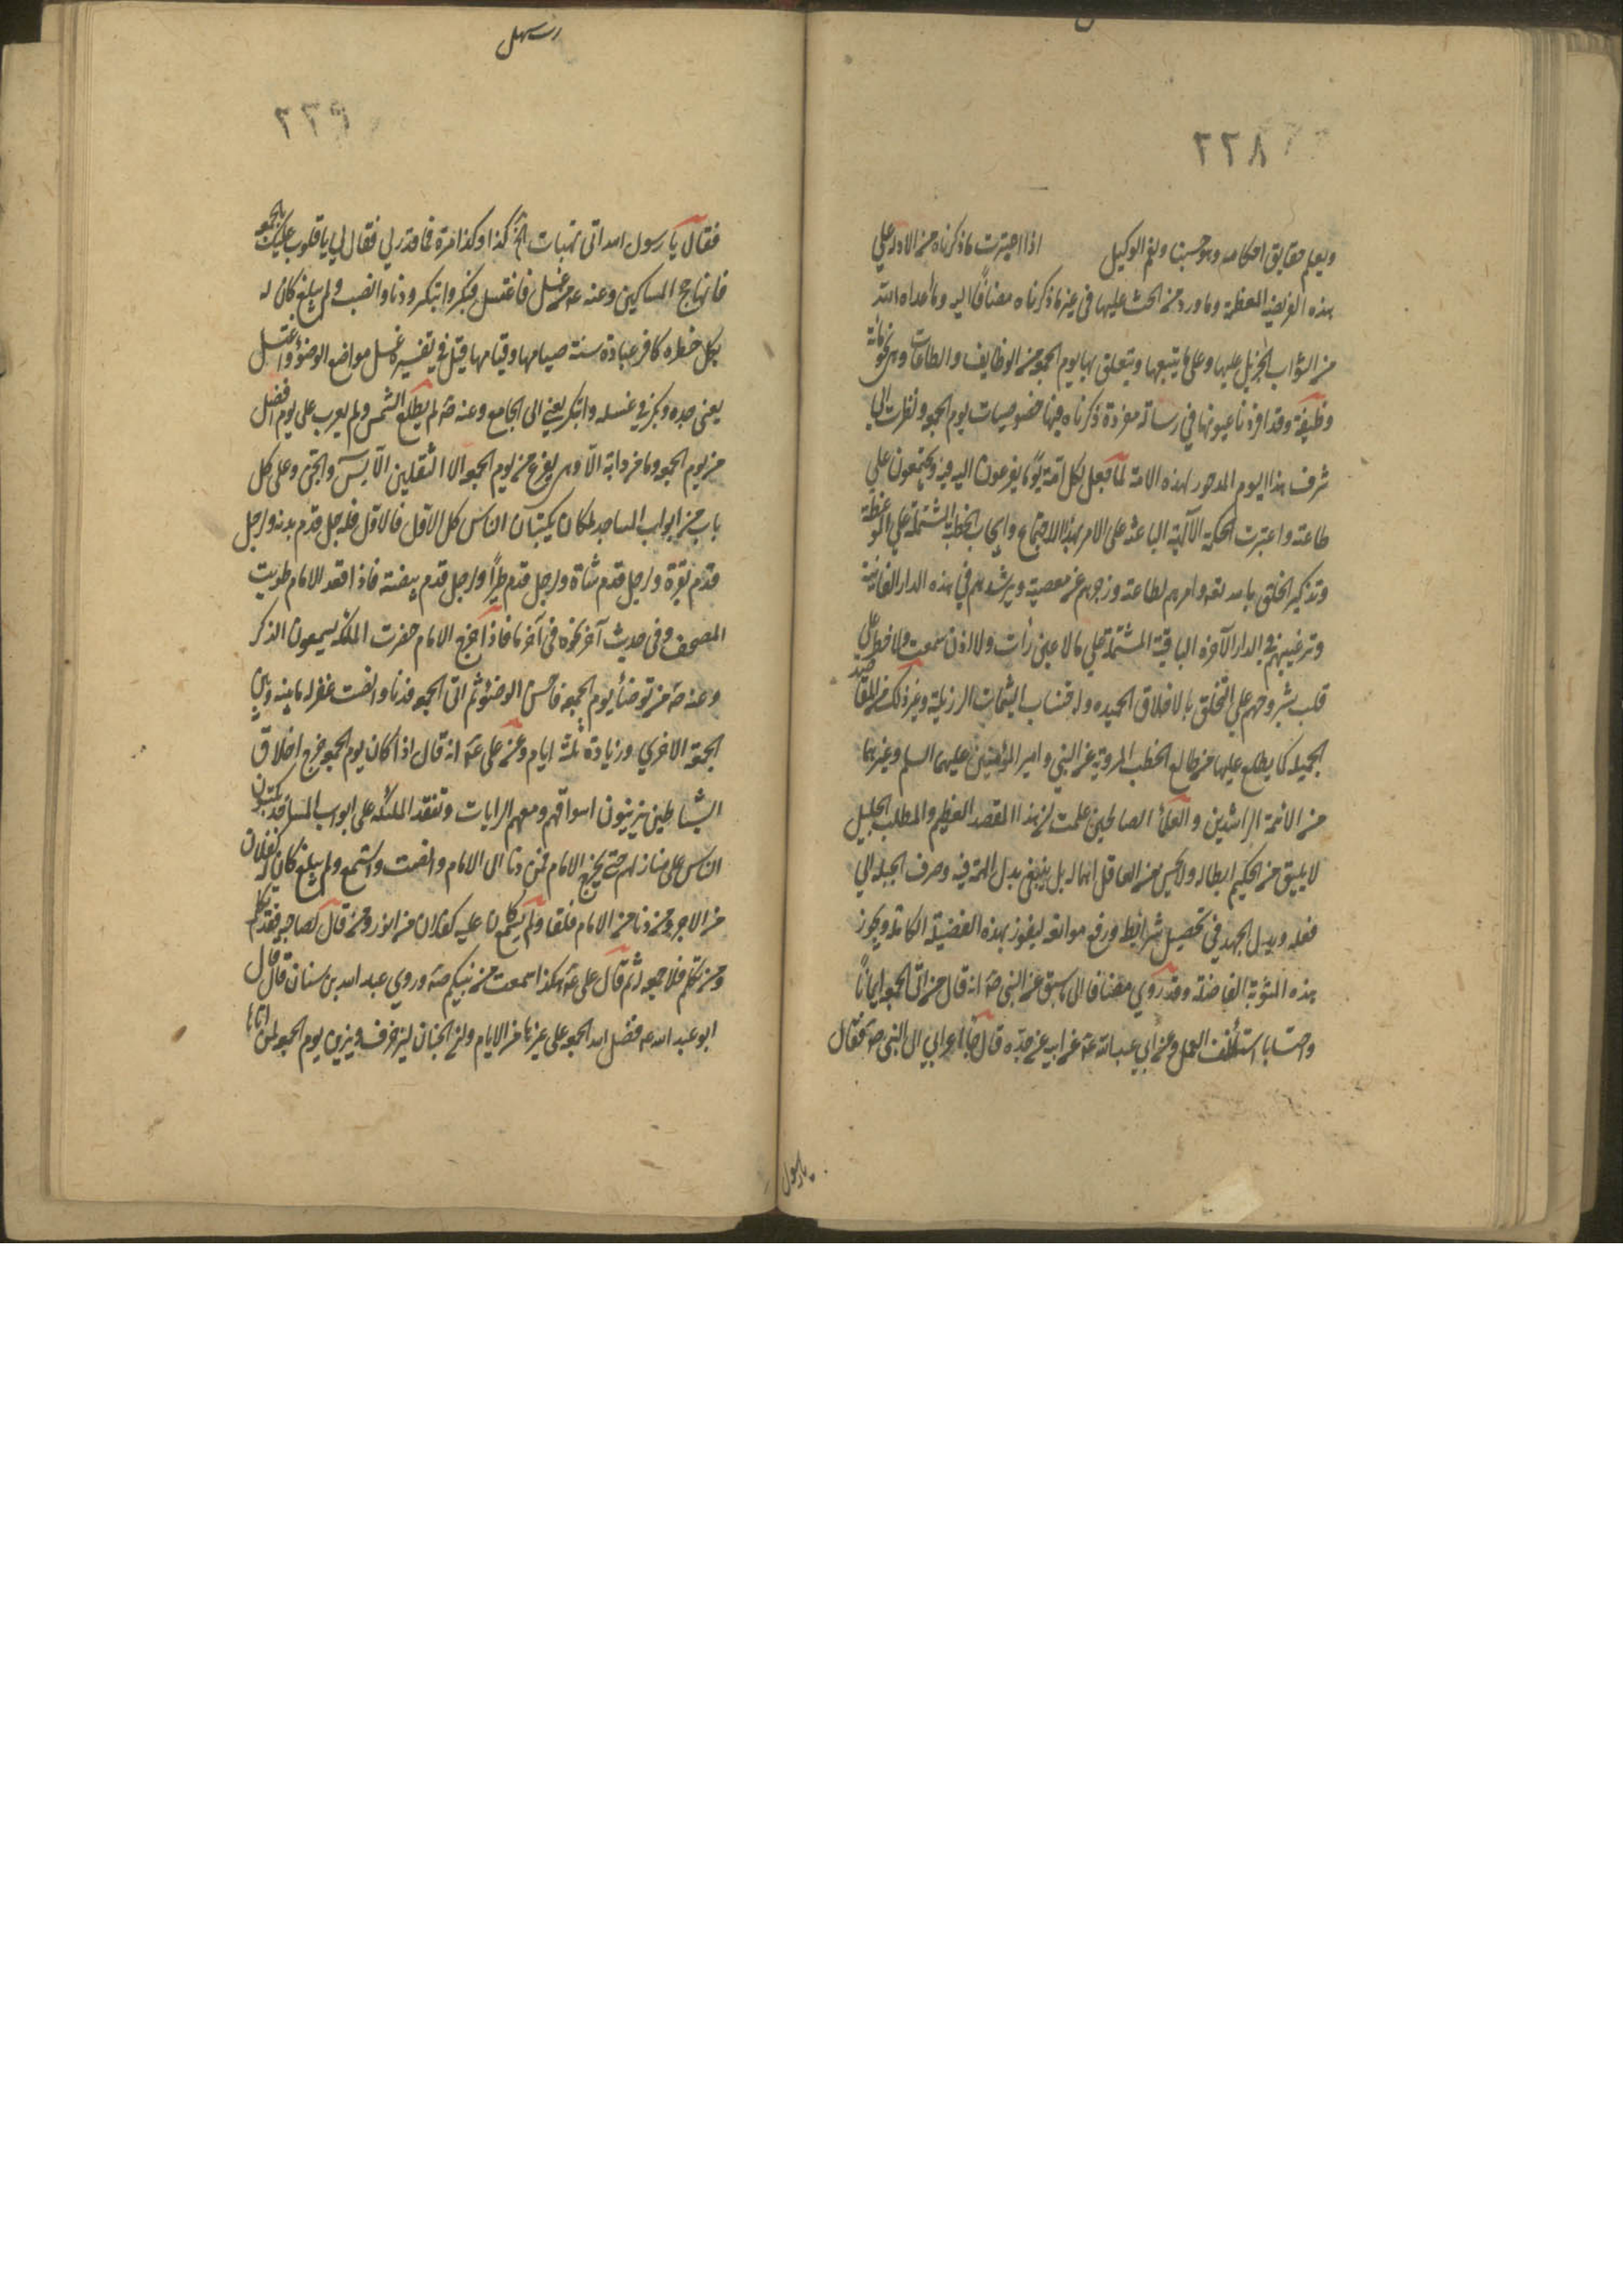 ٢٢٨
ويعلم حقايق احكامه وهو حسبنا ونعم الوكيل اذا اعتبرت ما ذكرناه من الادلة على
هذه الفريضة المعظمة وما ورد من الحث عليها في غير ما ذكرناه مضافا اليه وما اعداه الله
من الثواب الجزيل عليها وعلى ما يتبعها ويتعلق بها يوم الجمعه من الوظايف والطاعات وهي نحو مائة
وظيفة وقد افردنا عيونها في رسالة مفردة ذكرنا فيها خصوصيات يوم الجمعه ونظرت الى
شرف هذا اليوم المذخور لهذه الامة كما جعل لكل امة يوما يفزعون اليه فيه ويجتمعون على
طاعته واعتبرت الحكمة الآلهية الباعثة على الامر بهذا الاجتماع وايجاب الخطبة المشتملة على الموعظة
وتذكير الخلق بالله تعه وامرهم بطاعته وزجرهم عن معصيته ويرشدهم في هذه الدار الفانية
وترغيبهم في الدار الآخرة الباقية المشتملة على ما لا عين رأت ولا اذن سمعت ولا خطر على
قلب بشر وحثهم على التخلق بالاخلاق الحميده واجتناب السمات الرذيلة وغير ذلك من المقاصد
الجميلة كما يطلع عليها من طالع الخطب المروية عن النبي وامير المؤمنين عليهما السلم وغيرهما
من الائمة الراشدين والعلماء الصالحين علمت ان هذا المقصد العظيم والمطلب الجليل
لا يليق من الحكيم ابطاله ولا يحسن من العاقل اهماله بل ينبغي بذل الهمة فيه وصرف الحيلة الى
فعله وبذل الجهد في تحصيل شرايطه ورفع موانعه ليفوز بهذه الفضيلة الكاملة ويحوز
هذه المثوبة الفاضلة وقد روي مضافا الى ما سبق عن النبي صه انه قال من اتى الجمعه ايمانًا
واحتسابا استأنف العمل وعن ابي عبدالله عه عن ابيه عن جده قال جاء اعرابي الى النبي صه فقال
يا رسول
٢٢٩
فقال يا رسول الله اني تهيأت الى الحج كذا وكذا مرة فما قدر لي فقال لي يا قليب عليك بالجمعه
فانها حج المساكين وعنه عه من غسل فاغتسل وبكر وابتكر ودنا وانصت ولم يبلغ كان له
بكل خطوه كاجر عبادة سنة صيامها وقيامها قيل في تفسيره غسل مواضع الوضوء واغتسل
يعني جسده وبكر في غسله وابتكر يعني الى الجامع وعنه صه لم يطلع الشمس ولم يغرب على يوم افضل
من يوم الجمعه وما من دابة الا وهي يفزع من يوم الجمعه الا الثقلين الانس والجن وعلى كل
باب من ابواب المساجد ملكان يكتبان الناس كل الاول فالاول فكرجل قدم بدنه ورجل
قدم بقرة ورجل قدم شاة ورجل قدم طيرا ورجل قدم بيضة فاذا قعد الامام طويت
المصحف وفي حديث آخر نحوه في آخرها فاذا خرج الامام حضرت الملئكه يسمعون الذكر
وعنه صه من توضأ يوم الجمعه فاحسن الوضوء ثم اتى الجمعه فدنا وانصت غفر له ما بينه وبين
الجمعة الاخرى وزيادة ثلثة ايام وعن علي عه انه قال اذا كان يوم الجمعه خرج اخلاق
الشياطين يزينون اسواقهم ومعهم الرايات وتقعد الملئكه على ابواب المساجد يكتبون
الناس على منازلهم حتى يخرج الامام فمن دنا الى الامام وانصت واستمع ولم يبلغ كان له كفلان
من الاجر ومن دنا من الامام فلغا ولم يستمع كان عليه كفلان من الوزر ومن قال لصاحبه صه فقد تكلم
ومن تكلم فلا جمعه له ثم قال علي عه هكذا سمعت من نبيكم صه وروي عبد الله بن سنان قال قال
ابو عبد الله عه فضل الله الجمعه على غيرها من الايام وان الجنان ليزخرف ويزين يوم الجمعه لمن اتاها